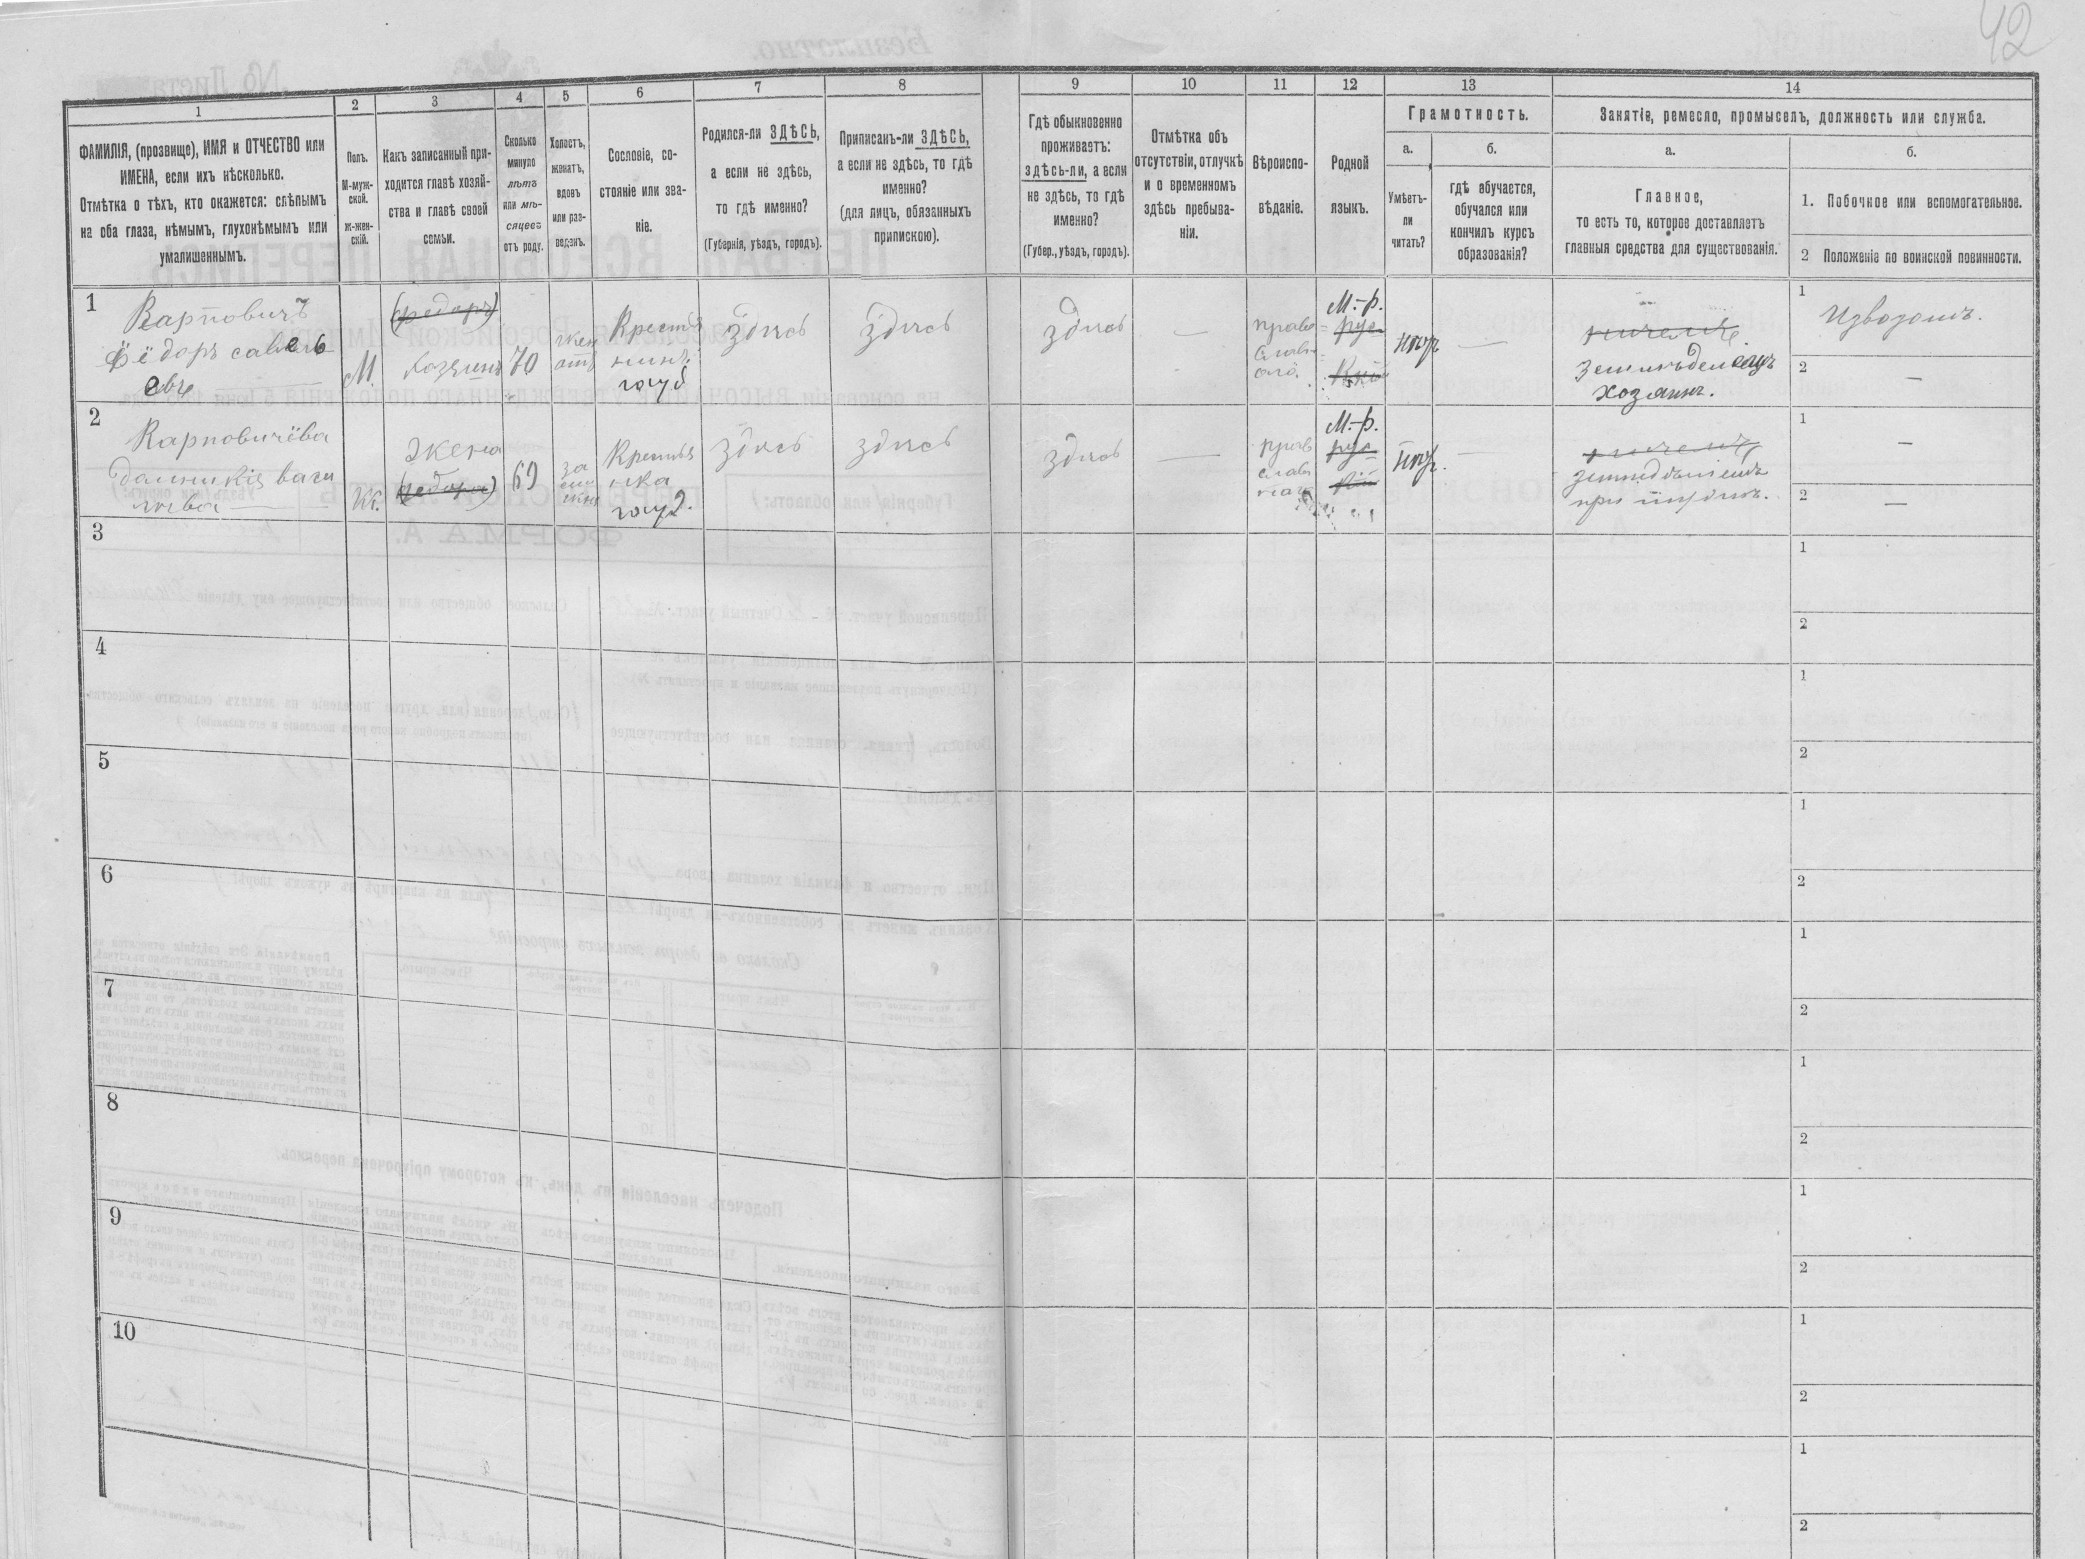 42
1
ФАМИЛІЯ, (прозвище), ИМЯ и ОТЧЕСТВО или
ИМЕНА, если ихъ нѣсколько.
Отмѣтка о тѣхъ, кто окажется: слѣпымъ
на оба глаза, нѣмымъ, глухонѣмымъ или
умалишеннымъ.
2
Полъ.
М-муж-
ской.
ж-жен-
скій.
3
Какъ записанный при-
ходится главѣ хозяй-
ства и главѣ своей
семьи.
4
Сколько
минуло
лѣтъ
или мѣ-
сяцевъ
отъ роду.
5
Холостъ,
женатъ,
вдовъ
или раз-
веденъ.
6
Сословіе, со-
стояніе или зва-
ніе.
7
Родился-ли ЗДѢСЬ,
а если не здѣсь,
то гдѣ именно?
(Губернія, уѣздъ, городъ).
8
Приписанъ-ли ЗДѢСЬ,
а если не здѣсь, то гдѣ
именно?
(для лицъ, обязанныхъ
припискою).
9
Гдѣ обыкновенно
проживаетъ:
здѣсь-ли, а если
не здѣсь, то гдѣ
именно?
(Губер., уѣздъ, городъ).
10
Отмѣтка объ
отсутствіи, отлучкѣ
и о временномъ
здѣсь пребыва-
ніи.
11
Вѣроиспо-
вѣданіе.
12
Родной
языкъ.
13
Грамотность.
а.
Умѣетъ-
ли
читать?
б.
гдѣ обучается,
обучался или
кончилъ курсъ
образованія?
14
Занятіе, ремесло, промыселъ, должность или служба.
а.
Главное,
то есть то, которое доставляетъ
главныя средства для существованія.
б.
1. Побочное или вспомогательное.
2 Положеніе по воинской повинности.
1
Карповичъ
Фёдоръ савель
евъ
М.
(федоръ)
хозяинъ
70
жен
атъ
Крестья
нинъ
госуд
здѣсь
здѣсь
здѣсь
—
право
славн
М.-р.
рус
нигр
—
Земледелецъ
хозяинъ.
1
Извозомъ.
2
—
2
Карповичёва
ж.
жена
(федора)
69
за
муж
Крестья
нка
здѣсь
здѣсь
здѣсь
—
право
слав
ная
М.-р.
рус
нигр.
—
при
1
—
2
—
3
1
2
4
1
2
5
1
2
6
1
2
7
1
2
8
1
2
9
1
2
10
1
2